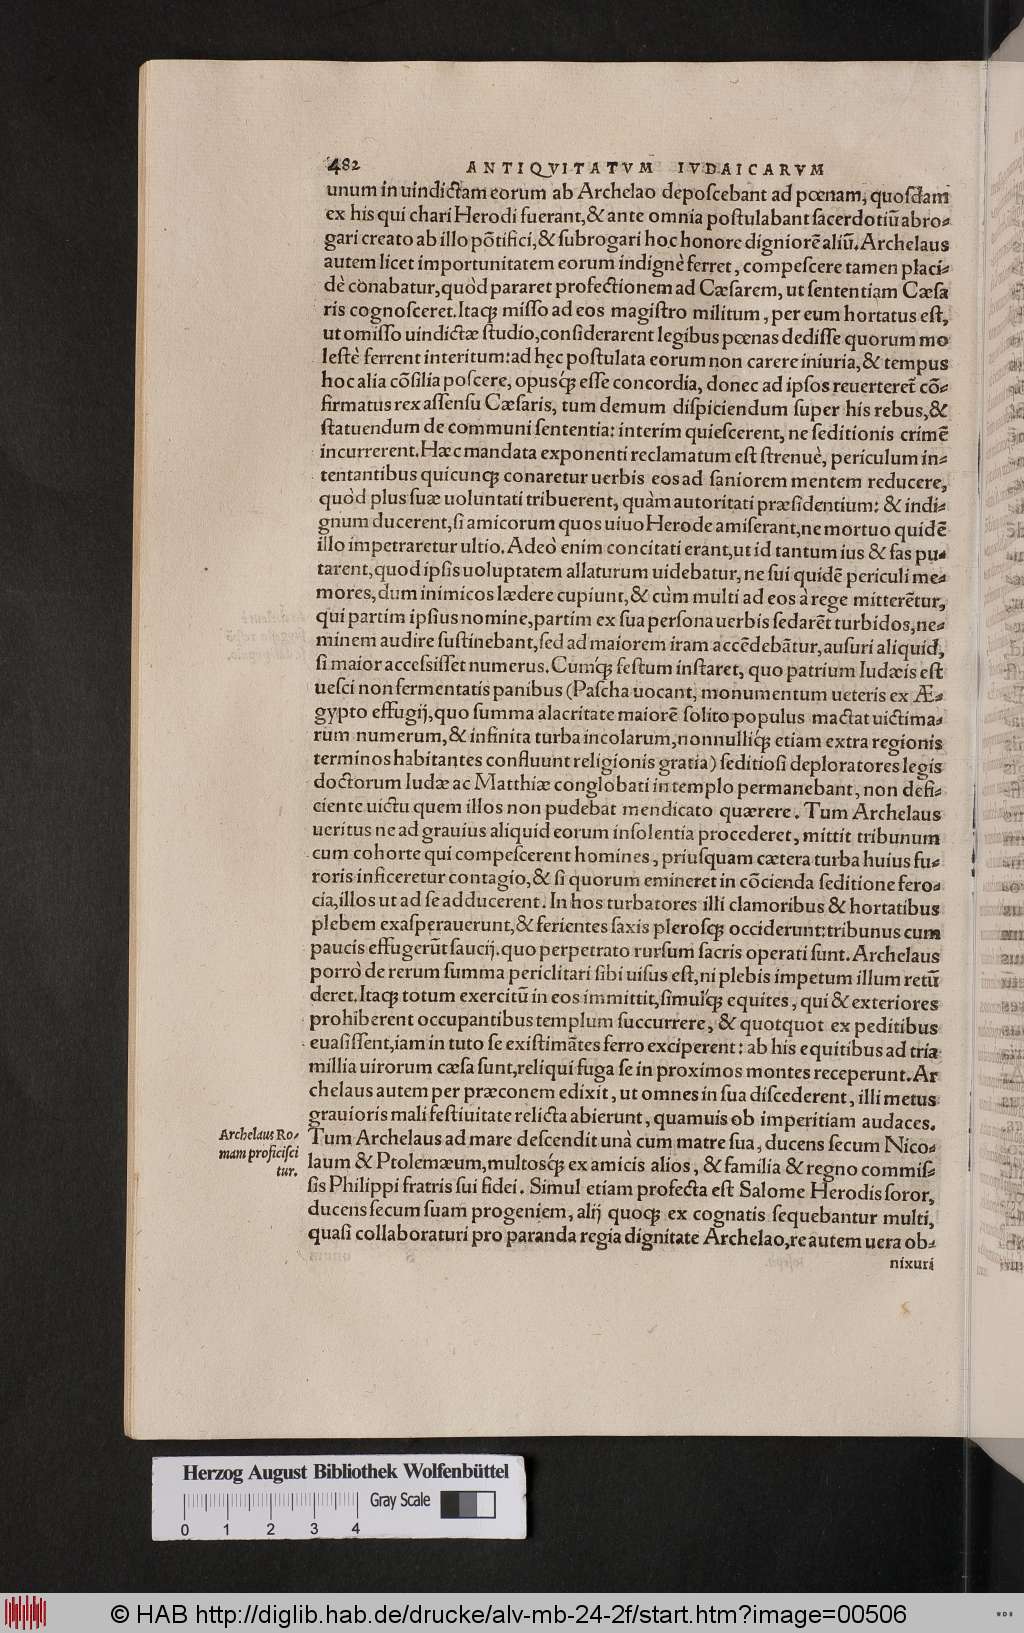 482 ANTIQVITATVM IVDAICARVM
unum in uindictam eorum ab Archelao deposcebant ad pœnam, quosdam
ex his qui chari Herodi fuerant, & ante omnia postulabant sacerdotiũ abro-
gari creato ab illo põtifici, & subrogari hoc honore digniorẽ aliũ. Archelaus
autem licet importunitatem eorum indignè ferret, compescere tamen placi-
dè conabatur, quòd pararet profectionem ad Cæsarem, ut sententiam Cæsa
ris cognosceret. Itaq; misso ad eos magistro militum, per eum hortatus est,
ut omisso uindictæ studio, considerarent legibus pœnas dedisse quorum mo
lestè ferrent interitum: ad hęc postulata eorum non carere iniuria, & tempus
hoc alia cõsilia poscere, opusq́; esse concordia, donec ad ipsos reuerteret̃ cõ-
firmatus rex assensu Cæsaris, tum demum dispiciendum super his rebus, &
statuendum de communi sententia: interim quiescerent, ne seditionis crimẽ
incurrerent. Hæc mandata exponenti reclamatum est strenuè, periculum in-
tentantibus quicunq; conaretur uerbis eos ad saniorem mentem reducere,
quòd plus suæ uoluntati tribuerent, quàm autoritati præsidentium: & indi-
gnum ducerent, si amicorum quos uiuo Herode amiserant, ne mortuo quidẽ
illo impetraretur ultio. Adeò enim concitati erant, ut id tantum ius & fas pu-
tarent, quod ipsis uoluptatem allaturum uidebatur, ne sui quidẽ periculi me-
mores, dum inimicos lædere cupiunt, & cùm multi ad eos à rege mitterẽtur,
qui partim ipsius nomine, partim ex sua persona uerbis sedarẽt turbidos, ne-
minem audire sustinebant, sed ad maiorem iram accẽdebãtur, ausuri aliquid,
si maior accessisset numerus. Cumq́; festum instaret, quo patrium Iudæis est
uesci non fermentatis panibus (Pascha uocant, monumentum ueteris ex Æ-
gypto effugij, quo summa alacritate maiorẽ solito populus mactat uictima-
rum numerum, & infinita turba incolarum, nonnulliq́; etiam extra regionis
terminos habitantes confluunt religionis gratia) seditiosi deploratores legis
doctorum Iudæ ac Matthiæ conglobati in templo permanebant, non defi-
ciente uictu quem illos non pudebat mendicato quærere. Tum Archelaus
ueritus ne ad grauius aliquid eorum insolentia procederet, mittit tribunum
cum cohorte qui compescerent homines, priusquam cætera turba huius fu-
roris inficeretur contagio, & si quorum emineret in cõcienda seditione fero-
cia, illos ut ad se adducerent. In hos turbatores illi clamoribus & hortatibus
plebem exasperauerunt, & ferientes saxis plerosq; occiderunt: tribunus cum
paucis effugerũt saucij. quo perpetrato rursum sacris operati sunt. Archelaus
porrò de rerum summa periclitari sibi uisus est, ni plebis impetum illum retũ
deret. Itaq; totum exercitũ in eos immittit, simulq́; equites, qui & exteriores
prohiberent occupantibus templum succurrere, & quotquot ex peditibus
euasissent, iam in tuto se existimãtes ferro exciperent: ab his equitibus ad tria
millia uirorum cæsa sunt, reliqui fuga se in proximos montes receperunt. Ar
chelaus autem per præconem edixit, ut omnes in sua discederent, illi metus
grauioris mali festiuitate relicta abierunt, quamuis ob imperitiam audaces.
Archelaus Ro-
mam proficisci
tur.
Tum Archelaus ad mare descendit unà cum matre sua, ducens secum Nico-
laum & Ptolemæum, multosq́; ex amicis alios, & familia & regno commis-
sis Philippi fratris sui fidei. Simul etiam profecta est Salome Herodis soror,
ducens secum suam progeniem, alij quoq; ex cognatis sequebantur multi,
quasi collaboraturi pro paranda regia dignitate Archelao, re autem uera ob-
nixuri
Herzog August Bibliothek Wolfenbüttel
Gray Scale
0 1 2 3 4
© HAB http://diglib.hab.de/drucke/alv-mb-24-2f/start.htm?image=00506